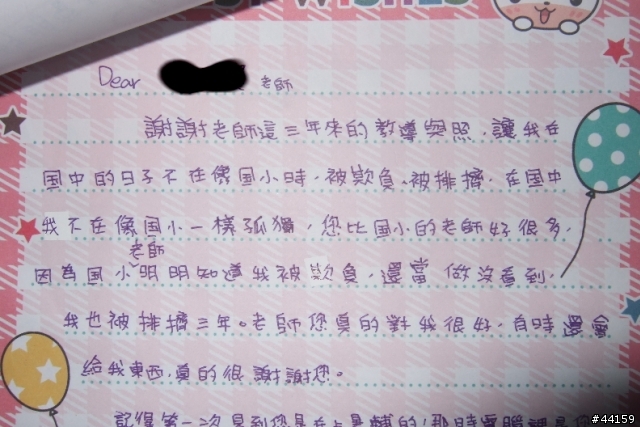 WISHES
Dear 老師
謝謝老師這三年來的教導與照,讓我在
国中的日子不在像国小時,被欺負、被排擠,在国中
我不在像国小一樣孤獨,您比国小的老師好很多,
老師
因為国小明明知道我被欺負,還當做沒看到,
我也被排擠三年。老師您真的對我很好,有時還會
給我東西,真的很謝謝您。
記得第一次見到您是在
#44159